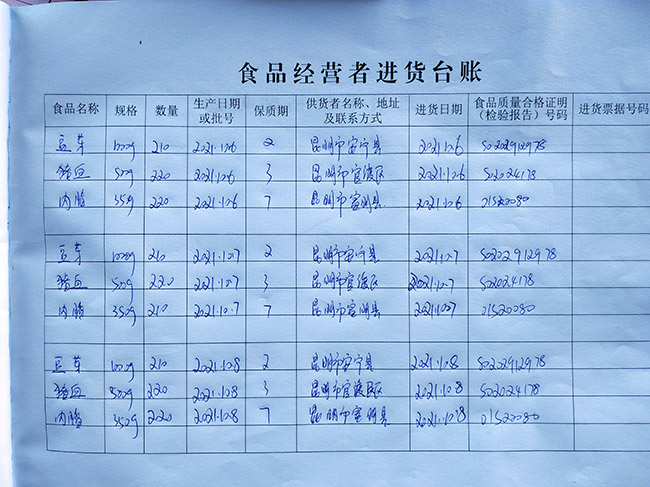 食品经营者进货台账
食品名称 规格 数量 生产日期或批号 保质期 供货者名称、地址及联系方式 进货日期 食品质量合格证明(检验报告)号码 进货票据号码
豆芽 1000g 210 2021.10.6 2 昆明市宜宁县 2021.10.6 50202912978
猪血 500g 220 2021.10.6 3 昆明市官渡区 2021.10.6 502024178
内脂 350g 220 2021.10.6 7 昆明市宜明县 2021.10.6 01520080
豆芽 1000g 210 2021.10.7 2 昆明市 2021.10.7 50202912978
猪血 500g 220 2021.10.7 3 昆明市官渡区 2021.10.7 502024178
内脂 350g 210 2021.10.7 7 昆明市 2021.10.7 01520080
豆芽 1000g 210 2021.10.8 2 昆明市 2021.10.8 50202912978
猪血 500g 220 2021.10.8 3 昆明市官渡区 2021.10.8 502024178
内脂 350g 220 2021.10.8 7 昆明市 2021.10.8 01520080